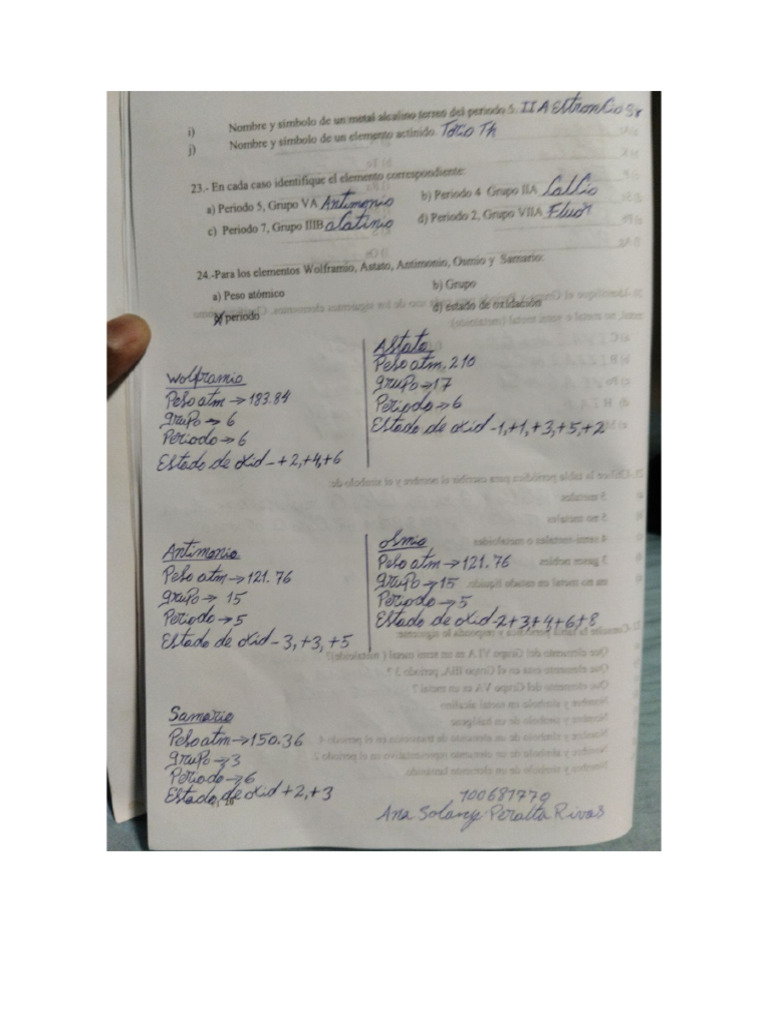 i) Nombre y símbolo de un metal alcalino terreo del periodo 5. IIA Estroncio Sr
j) Nombre y símbolo de un elemento actinido. Torio Th
23.- En cada caso identifique el elemento correspondiente:
a) Periodo 5, Grupo VA Antimonio b) Periodo 4 Grupo IIA Calcio
c) Periodo 7, Grupo IIIB alatinio d) Periodo 2, Grupo VIIA Fluor
24.-Para los elementos Wolframio, Astato, Antimonio, Osmio y Samario:
a) Peso atómico b) Grupo
periodo d) estado de oxidación
Wolframio
Peso atm → 183.84
grupo → 6
Periodo → 6
Estado de oxid - +2,+4,+6
Astato
Peso atm. 210
grupo → 17
Periodo → 6
Estado de oxid -1,+1,+3,+5,+2
Antimonio
Peso atm → 121.76
grupo → 15
Periodo → 5
Estado de oxid - 3, +3, +5
Osmio
Peso atm → 121.76
grupo → 15
Periodo → 5
Estado de oxid -2+3+4+6+8
Samario
Peso atm → 150.36
grupo → 3
Periodo → 6
Estado de oxid +2,+3
100681770
Ana Solany Peralta Rivas